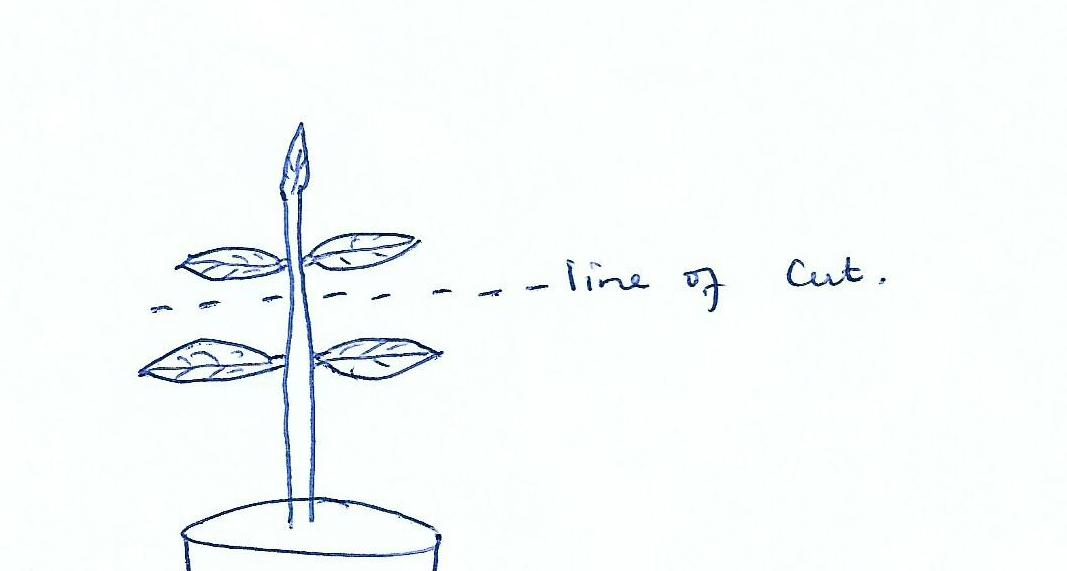 line of Cut.